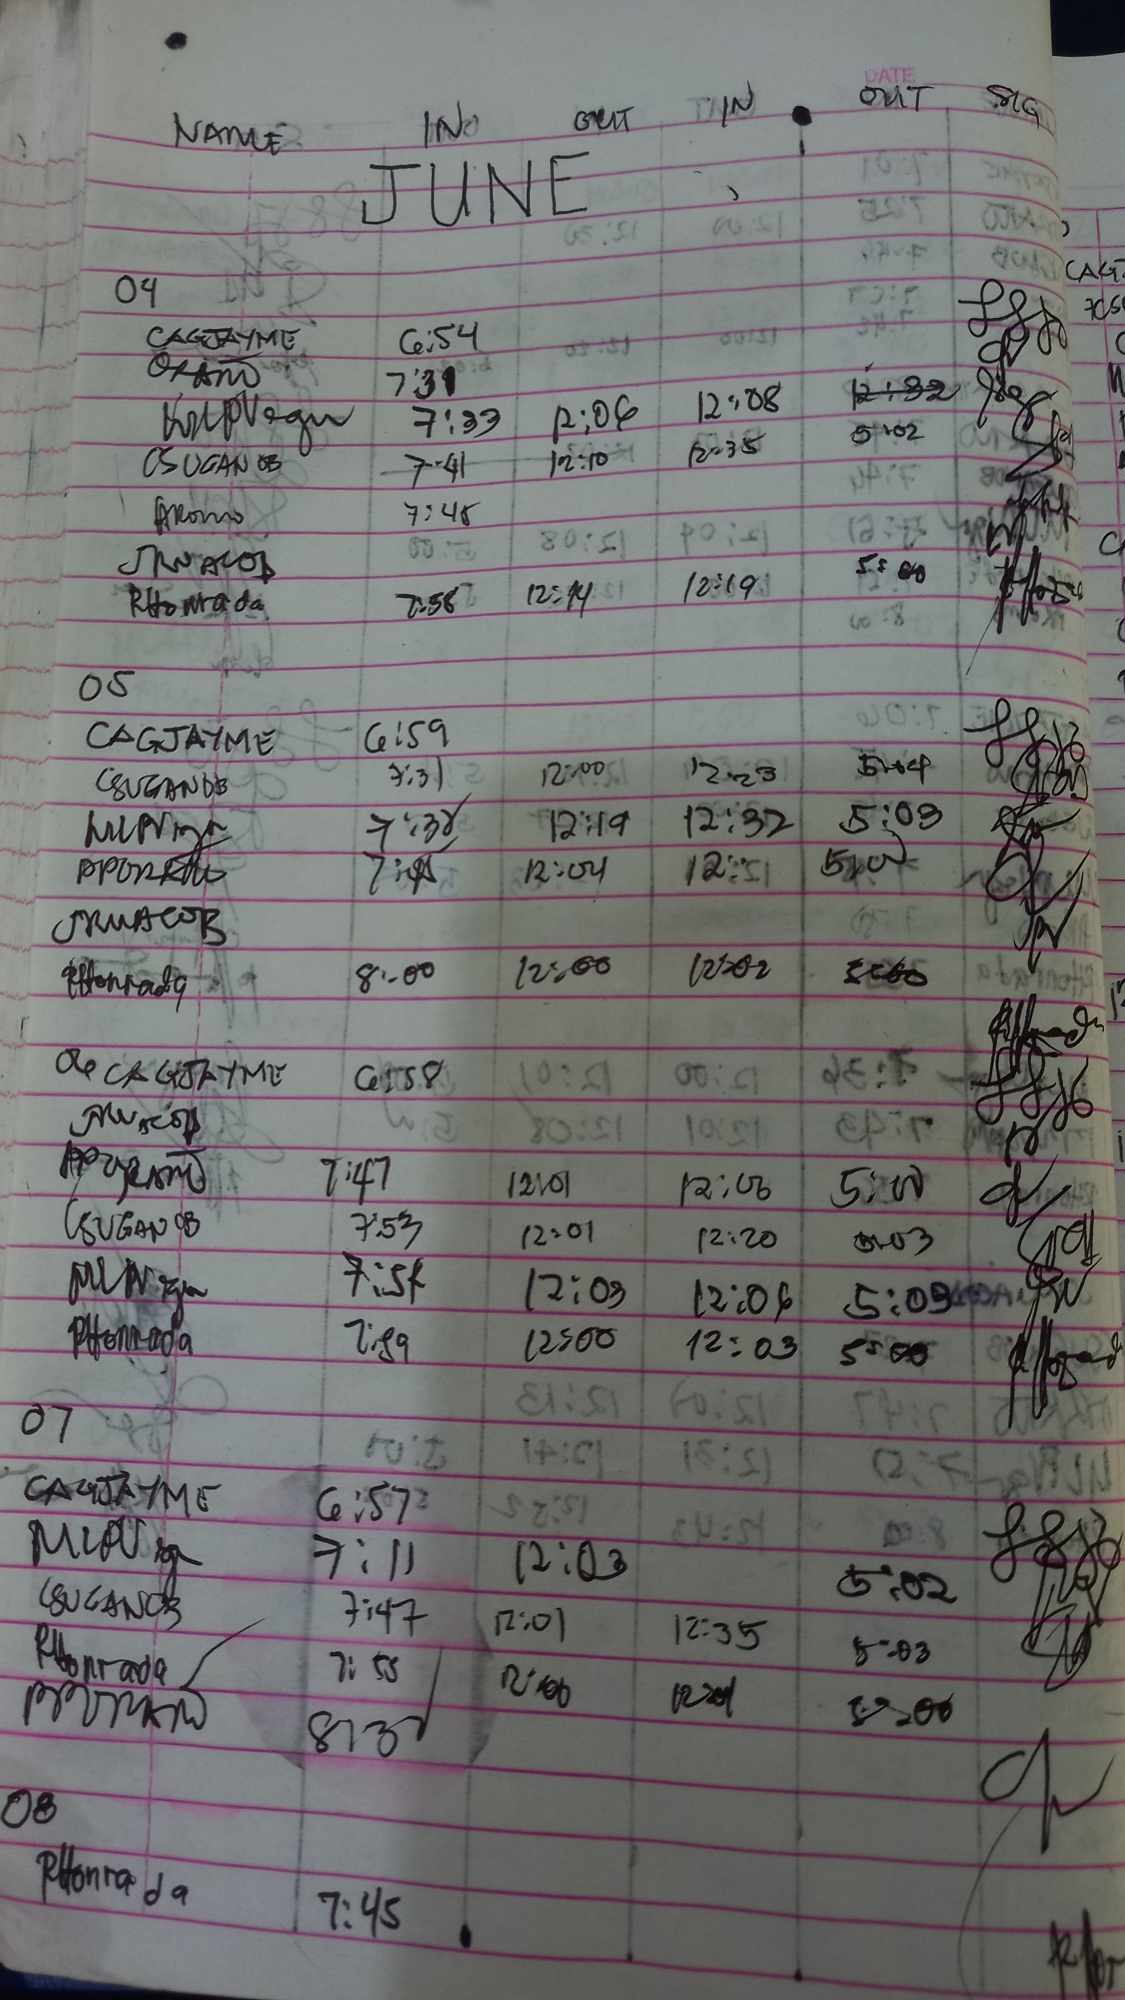 DATE
NAME IN OUT IN OUT SIG
JUNE
04
CAGJAYME 6:54
7:31
7:33 12:06 12:08 12:32
CSUGANOB 7:41 12:10 12:35 5:02
7:48
JRNACOB
RHonrada 7:58 12:14 12:19 5:00
05
CAGJAYME 6:59
CSUGANOB 7:31 12:00 12:23 5:04
MLPVega 7:38 12:19 12:32 5:03
12:04 12:
JRNACOB
RHonrada 8:00 12:00 12:02 5:00
06 CAGJAYME 6:58
JRNACOB
7:47 12:01 12:06 5:00
CSUGANOB 7:53 12:01 12:20 5:03
MLPVega 12:03 12:06 5:03
RHonrada 7:59 12:00 12:03 5:00
07
CAGJAYME 6:57
MLPVega 7:11 12:03 5:02
CSUGANOB 7:47 12:01 12:35 5:03
RHonrada 7:55 12:00 12:01 5:00
08
RHonrada 7:45